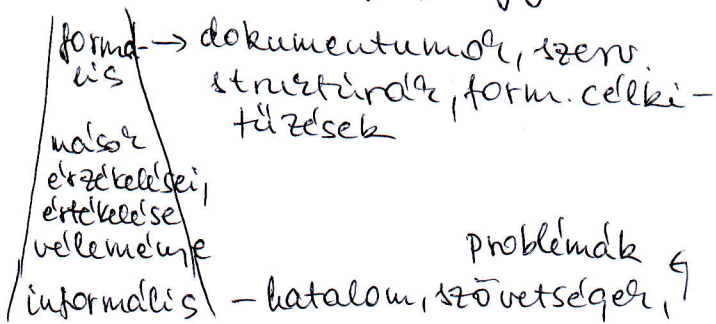 formá- → dokumentumok, szerv.
lis struktúrák, form. célki-
tűzések
mások
érzékelései,
értékelése
véleménye
problémák
informális – hatalom, szövetségek,